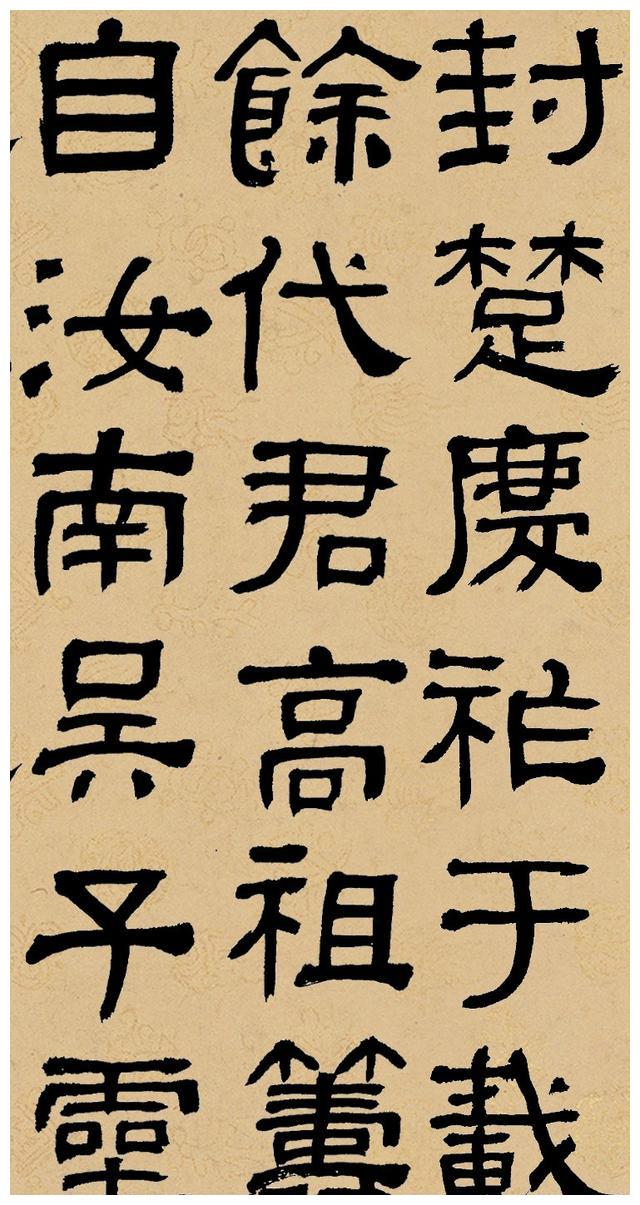 封楚慶祚于載
餘代君高祖
自汝南吳子